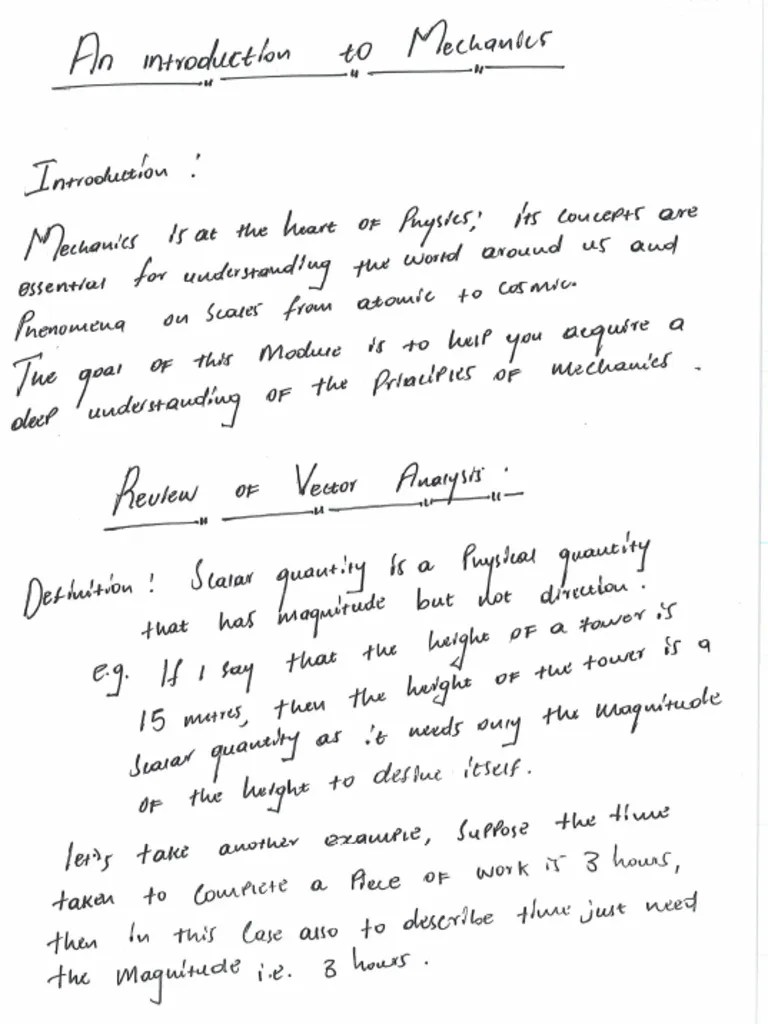 An introduction to Mechanics
Introduction :
Mechanics is at the heart of Physics; its concepts are
essential for understanding the world around us and
Phenomena on scales from atomic to cosmic.
The goal of this Module is to help you acquire a
deep understanding of the Principles of mechanics.
Review of Vector Analysis.
Definition: Scalar quantity is a Physical quantity
that has magnitude but not direction.
e.g. If I say that the height of a tower is
15 metres, then the height of the tower is a
scalar quantity as it needs only the magnitude
of the height to define itself.
let's take another example, suppose the time
taken to complete a Piece of work is 3 hours,
then in this case also to describe time just need
the magnitude i.e. 3 hours.